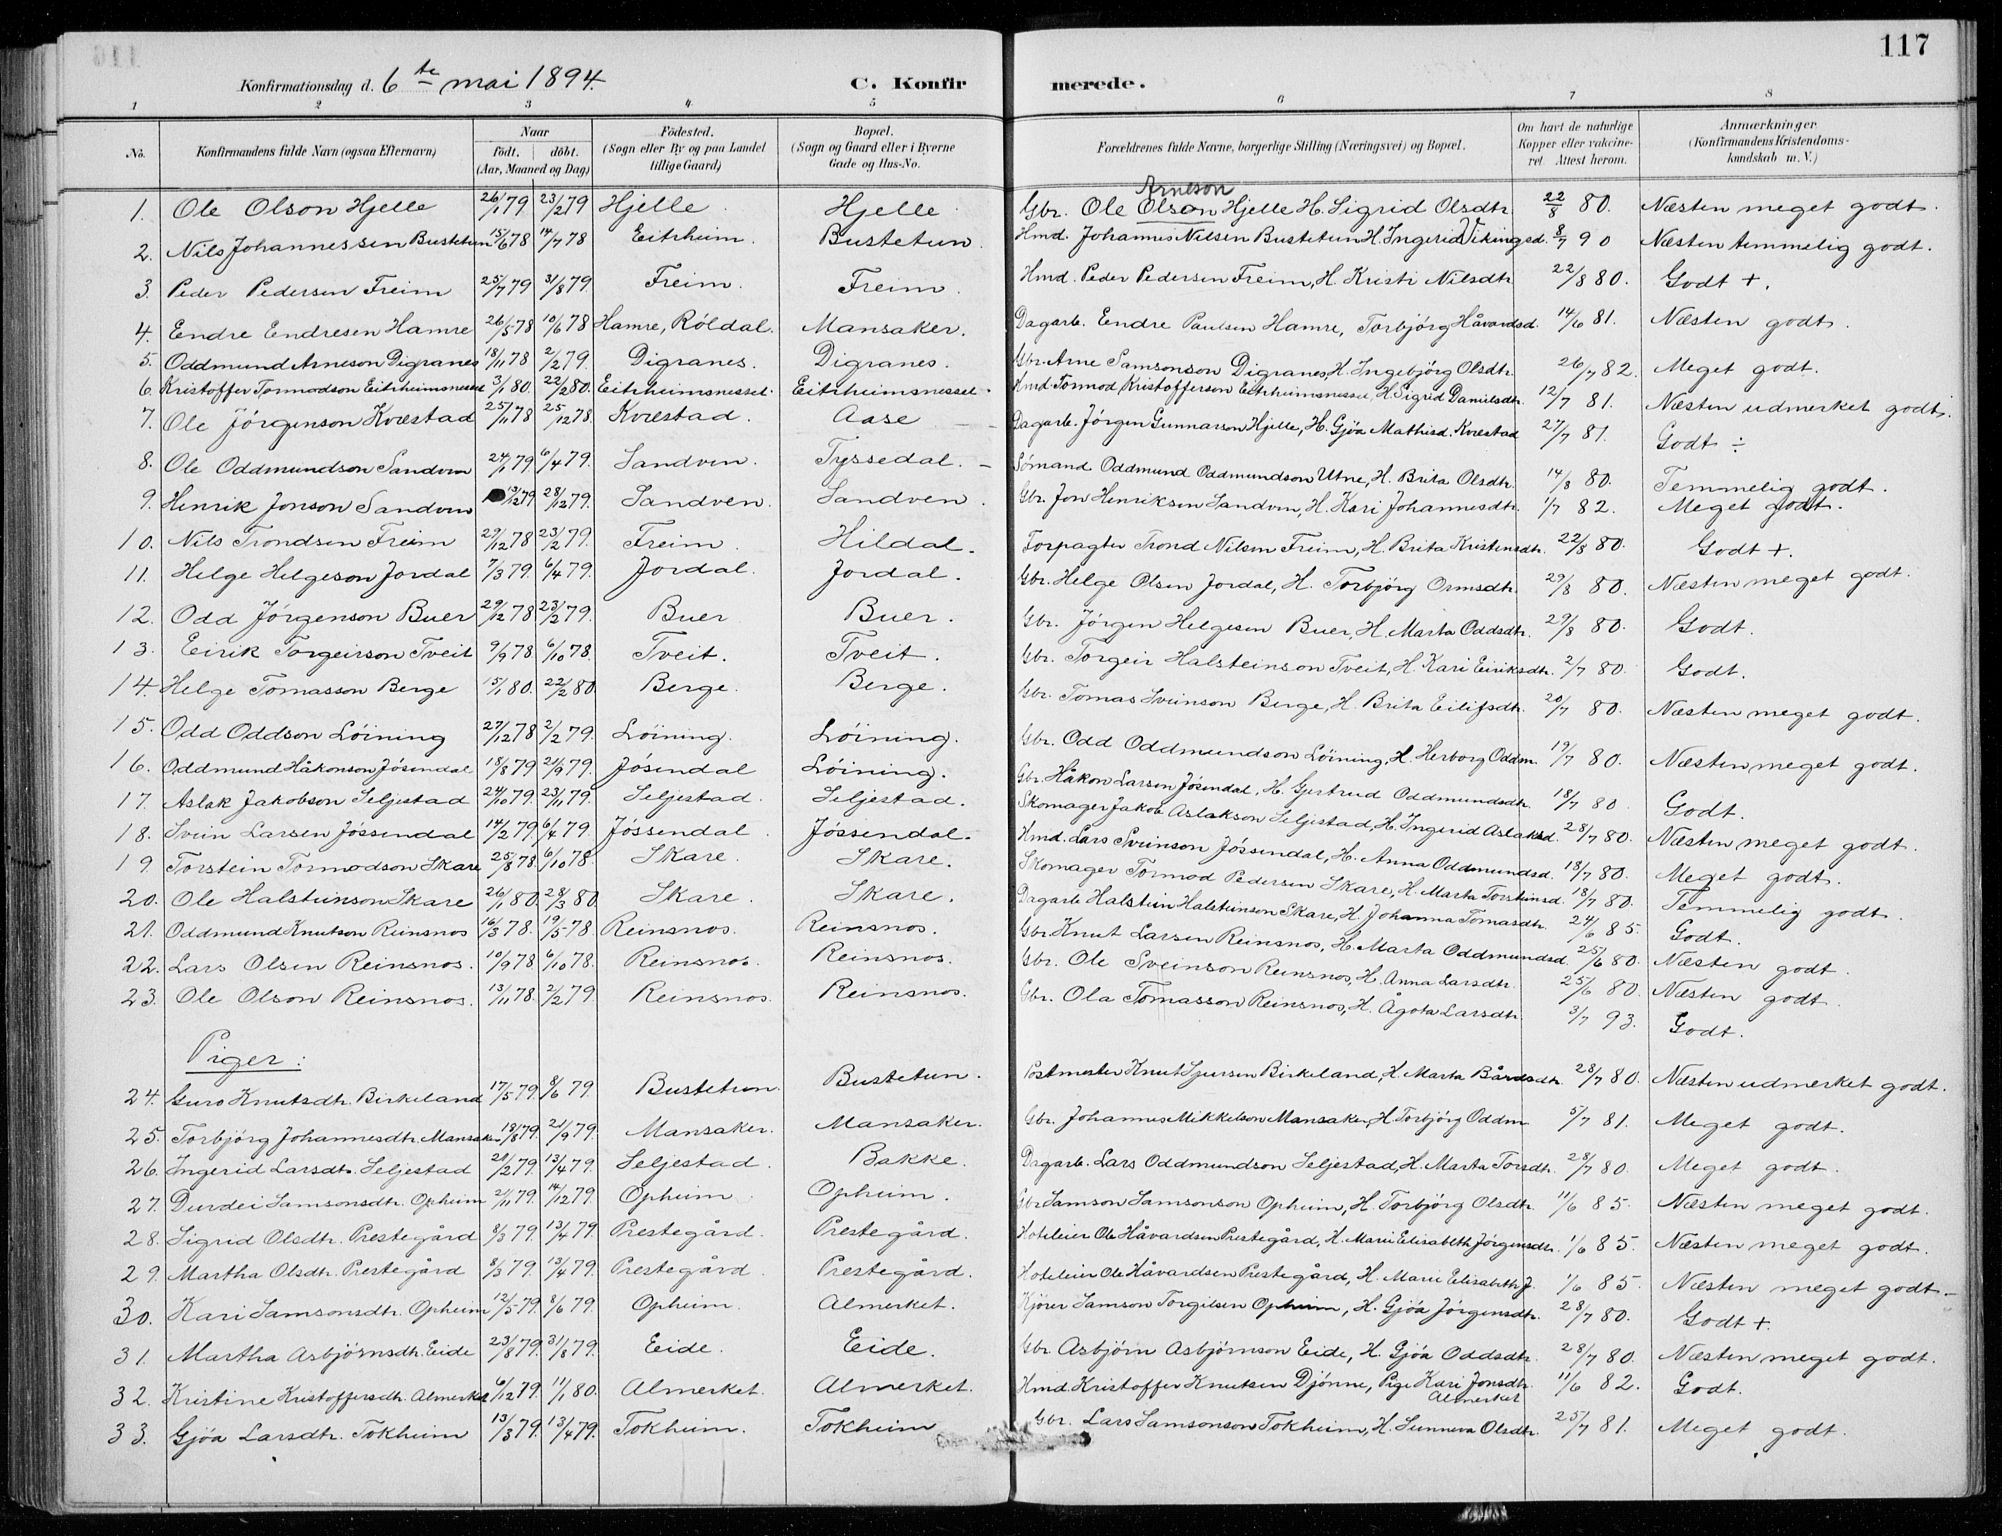 117
Konfirmationsdag d. 6te mai 1894. C. Konfirmerede.
1 2 3 4 5 6 7 8
No. Konfirmandens fulde Navn (ogsaa Efternavn) Naar födt. döbt. (Aar, Maaned og Dag) Födested. (Sogn eller By og paa Landet tillige Gaard) Bopæl. (Sogn og Gaard eller i Byerne Gade og Hus-No. Forældrenes fulde Navne, borgerlige Stilling (Næringsvei) og Bopæl. Om havt de naturlige Kopper eller vakcineret Attest herom. Anmærkninger (Konfirmandens Kristendomskundskab m. V.)
1. Ole Olson Hjelle 26/1 79 23/2 79 Hjelle. Hjelle Gbr. Ole Olson Arneson Hjelle H. Sigrid Olsdtr. 22/8 80. Næsten meget godt.
2. Nils Johannessen Bustetun 15/6 78 14/7 78 Eitrheim. Bustetun. Hmd. Johannes Nilsen Bustetun H. Ingerid Vikingsd. 8/7 90 Næsten temmelig godt.
3. Peder Pedersen Freim 25/7 79 31/8 79. Freim. Freim. Hmd. Peder Pedersen Freim, H. Kristi Nilsdtr. 22/8 80. Godt +.
4. Endre Endresen Hamre 26/5 78 10/6 78 Hamre, Röldal. Mansaker. Dagarb. Endre Paulsen Hamre, Torbjörg Håvardsd. 14/6 81. Næsten godt.
5. Oddmund Arneson Digranes 18/11 78 2/2 79. Digranes. Digranes. Gbr. Arne Samsonson Digranes, H. Ingebjörg Olsdtr. 26/7 82. Meget godt.
6. Kristoffer Tormodson Eitrheimsnesset 3/1 80. 22/2 80. Eitrheimsnesset. Eitrheimsnesset. Hmd. Tormod Kristofferson Eitrheimsnesset, H. Sigrid Danielsdtr. 12/7 81. Næsten udmerket godt.
7. Ole Jörgenson Kvæstad 25/11 78 25/12 78. Kvæstad. Aase Dagarb. Jörgen Gunnarson Hjelle, H. Gjøa Mathisd. Kvæstad 27/7 81. Godt ÷
8. Ole Oddmundson Sandven 24/1 79. 6/4 79. Sandven. Tyssedal. Sömand Oddmund Oddmundson Utne, H. Brita Olsdtr. 14/8 80. Temmelig godt.
9. Henrik Jonson Sandven 13/12 79 28/12 79. Sandven. Sandven. Gbr. Jon Henriksen Sandven, H. Kari Johannesdtr. 1/7 82. Meget godt.
10. Nils Trondsen Freim 29/12 78 23/2 79. Freim. Hildal. Forpagter Trond Nilsen Freim, H. Brita Kristensdtr. 22/8 80. Godt +.
11. Helge Helgeson Jordal 7/3 79. 6/4 79. Jordal. Jordal. Gbr. Helge Olsen Jordal, H. Torbjörg Ormsdtr. 29/8 80. Næsten meget godt.
12. Odd Jörgenson Buer 29/12 78 23/2 79. Buer Buer. Gbr. Jörgen Helgesen Buer, H. Marta Oddsdtr. 29/8 80. Godt.
13. Eirik Torgeirson Tveit 9/9 78 6/10 78. Tveit. Tveit. Gbr. Torgeir Halsteinson Tveit, H. Kari Eiriksdtr. 2/7 80. Godt.
14. Helge Tomasson Berge 15/1 80. 22/2 80 Berge. Berge. Gbr. Tomas Sveinson Berge, H. Brita Eilifsdtr. 20/7 80. Næsten meget godt.
15. Odd Oddson Löining 27/12 78 2/2 79. Löining. Löining. Gbr. Odd Oddmundson Löining, H. Herborg Oddm. 19/7 80. Næsten meget godt.
16. Oddmund Håkonson Jösendal 18/8 79 21/9 79. Jösendal Löining. Gbr. Håkon Larsen Jösendal, H. Gjertrud Oddmundsdtr. 18/7 80. Godt.
17. Aslak Jakobson Seljestad 24/10 79 23/11 79. Seljestad. Seljestad. Skomager Jakob Aslakson Seljestad, H. Ingerid Aslaksd. 28/7 80. Næsten meget godt.
18. Svein Larsen Jössendal 14/2 79 6/4 79. Jössendal. Jössendal. Hmd. Lars Sveinson Jössendal, H. Anna Oddmundsd. 18/7 80. Meget godt.
19. Torstein Tormodson Skare 25/8 78. 6/10 78. Skare. Skare. Skomager Tormod Pedersen Skare, H. Marta Torsteinsd. 18/7 80. Temmelig godt.
20. Ole Halsteinson Skare 26/1 80. 28/3 80. Skare. Skare. Dagarb. Halstein Halsteinson Skare, H. Johanna Tomasdtr. 24/6 85. Godt.
21. Oddmund Knutson Reinsnos 16/3 78. 19/5 78 Reinsnos. Reinsnos. Gbr. Knut Larsen Reinsnos, H. Marta Oddmundsd. 25/6 80. Næsten godt.
22. Lars Olsen Reinsnos. 10/9 78 6/10 78. Reinsnos. Reinsnos. Gbr. Ole Sveinson Reinsnos, H. Anna Larsdtr. 25/6 80. Næsten godt.
23. Ole Olson Reinsnos. 13/11 78. 2/2 79. Reinsnos. Reinsnos. Gbr. Ola Tomasson Reinsnos, H. Ågota Larsdtr. 3/7 93. Godt.
Piger:
24. Guro Knutsdtr. Birkeland 17/5 79. 8/6 79. Bustetun. Bustetun. Postmester Knut Sjursen Birkeland, H. Marta Bårdsdtr. 28/7 80. Næsten udmerket godt.
25. Torbjörg Johannesdtr. Mansaker 18/8 79. 21/9 79. Mansaker. Mansaker. Gbr. Johannes Mikkelson Mansaker, H. Torbjörg Oddm. 5/7 81. Meget godt.
26. Ingerid Larsdtr. Seljestad 21/2 79. 13/4 79. Seljestad. Bakke. Dagarb. Lars Oddmundson Seljestad, H. Marta Torsdtr. 28/7 80. Meget godt.
27. Durdei Samsonsdtr. Opheim 2/11 79. 14/12 79. Opheim Opheim. Gbr. Samson Samsonson Opheim, H. Torbjörg Olsdtr. 11/6 85. Næsten meget godt.
28. Sigrid Olsdtr. Prestegård 8/3 79. 13/4 79. Prestegård. Prestegård. Hoteleier Ole Håvardsen Prestegård, H. Marie Elisabeth Jörgensdtr. 1/6 85. Næsten meget godt.
29. Martha Olsdtr. Prestegård 8/3 79. 13/4 79. Prestegård. Prestegård. Hoteleier Ole Håvardsen Prestegård, H. Marie Elisabeth J. 1/6 85. Næsten meget godt.
30. Kari Samsonsdtr. Opheim 12/5 79. 8/6 79. Opheim. Almerket. Kjörer Samson Torgilsen Opheim, H. Gjøa Jörgensdtr. 28/7 80. Godt +.
31. Martha Asbjörnsdtr. Eide 23/8 79. 31/8 79. Eide. Eide. Gbr. Asbjörn Asbjörnson Eide, H. Gjøa Oddsdtr. 28/7 80. Næsten meget godt.
32. Kristine Kristoffersdtr. Almerket 6/12 79. 11/1 80. Almerket. Almerket. Hmd. Kristoffer Knutsen Djönne, Pige Kari Jonsdtr. Almerket 11/6 82. Godt.
33. Gjøa Larsdtr. Tokheim 13/3 79. 13/4 79. Tokheim. Tokheim Gbr. Lars Samsonson Tokheim, H. Sunneva Olsdtr. 25/7 81. Meget godt.